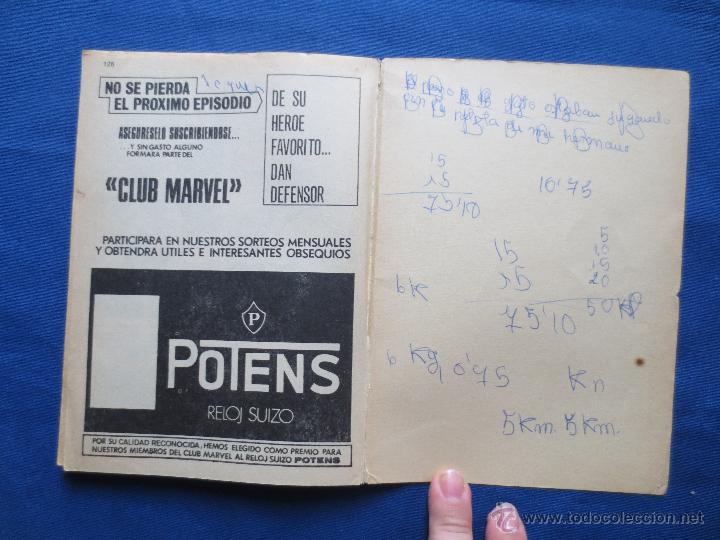 126
NO SE PIERDA
EL PROXIMO EPISODIO
ASEGURESELO SUSCRIBIENDOSE...
...Y SIN GASTO ALGUNO
FORMARA PARTE DEL
"CLUB MARVEL"
DE SU
HEROE
FAVORITO...
DAN
DEFENSOR
PARTICIPARA EN NUESTROS SORTEOS MENSUALES
Y OBTENDRA UTILES E INTERESANTES OBSEQUIOS
P
POTENS
RELOJ SUIZO
POR SU CALIDAD RECONOCIDA, HEMOS ELEGIDO COMO PREMIO PARA
NUESTROS MIEMBROS DEL CLUB MARVEL AL RELOJ SUIZO POTENS
estaban jugando
pelota mi hermano
15
15
75'10
10'75
15
15
75'10
5
10
15
20
50
b K
b Kg, 0'75
Kn
5 Km. 5 Km.
© todocoleccion
www.todocoleccion.net